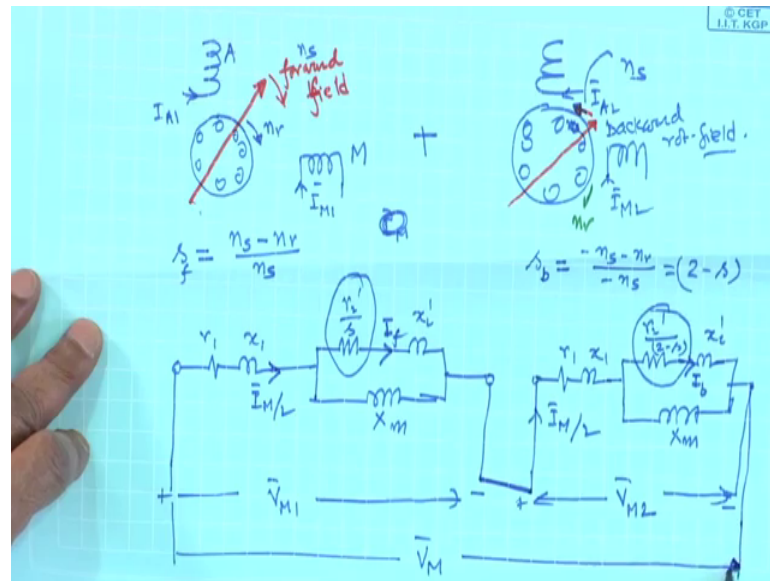 © CET
I.I.T. KGP
A
n_s
forward
field
I_{A1}
n_r
M
\bar{I}_{M1}
+
n_s
\bar{I}_{A2}
backward
rot. field.
\bar{I}_{M2}
n_r
s_f = \frac{n_s - n_r}{n_s}
s_b = \frac{-n_s - n_r}{-n_s} = (2 - s)
r_1 x_1 \frac{r_2'}{s} I_f x_2'
\bar{I}_M/2
X_m
r_1 x_1 \frac{r_2'}{(2-s)} x_2'
I_b
\bar{I}_M/2
X_m
+ \bar{V}_{M1} -
+ \bar{V}_{M2} -
\bar{V}_M